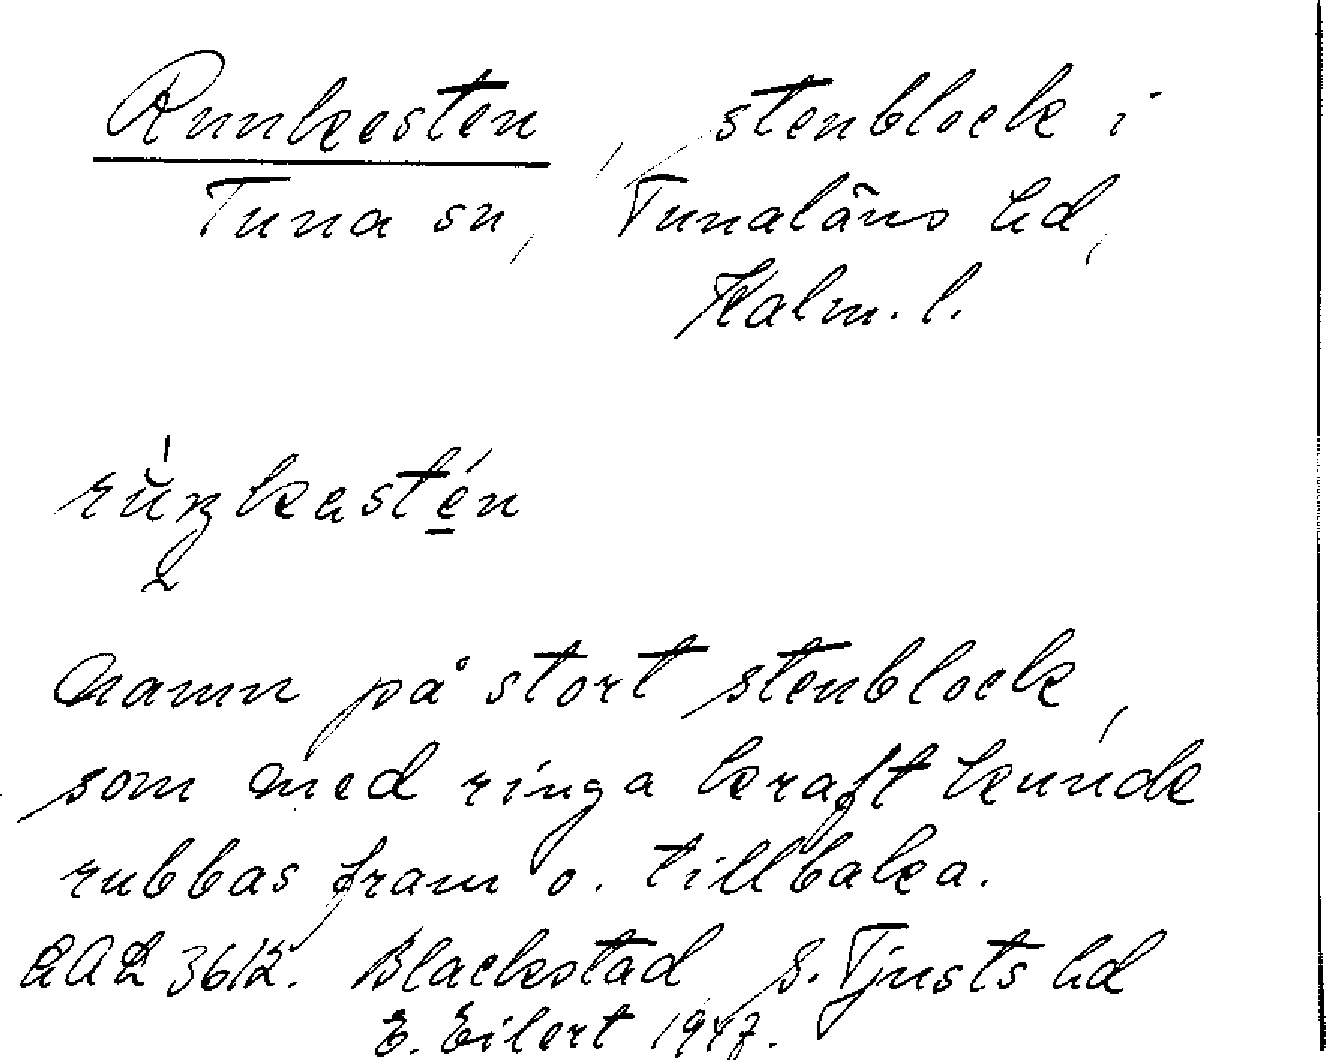 Runkesten, stenblock i
Tuna sn, Tunaläns hd,
Kalm. l.
namn på stort stenblock,
som med ringa kraft kunde
rubbas fram o. tillbaka.
3612. Blackstad S. Tjusts hd
E. Eilert 1947.